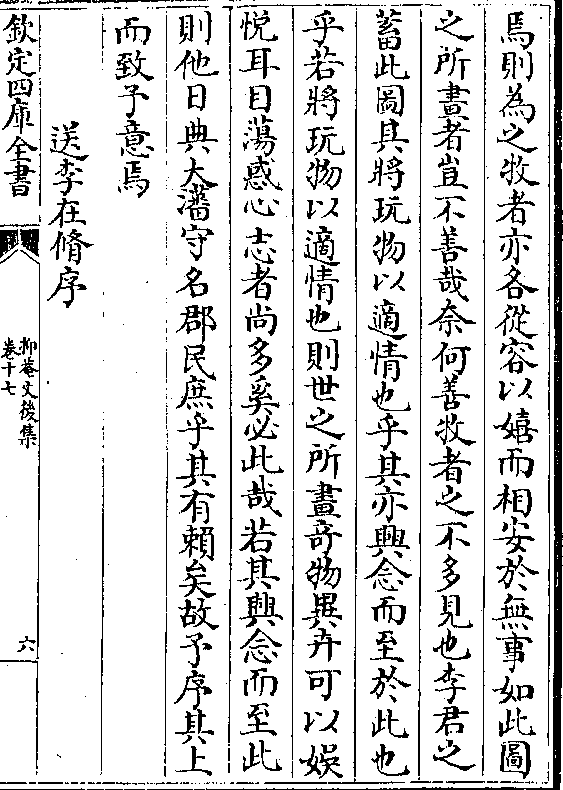 焉則為之牧者亦各從容以嬉而相安於無事如此圖
之所畫者豈不善哉奈何善牧者之不多見也李君之
蓄此圖其將玩物以適情也乎其亦興念而至於此也
乎若將玩物以適情也則世之所畫竒物異卉可以娛
悅耳目蕩惑心志者尚多奚必此哉若其興念而至此
則他日典大藩守名郡民庶乎其有賴矣故予序其上
而致予意焉
送李在脩序
欽定四庫全書
抑菴文後集
卷十七
六